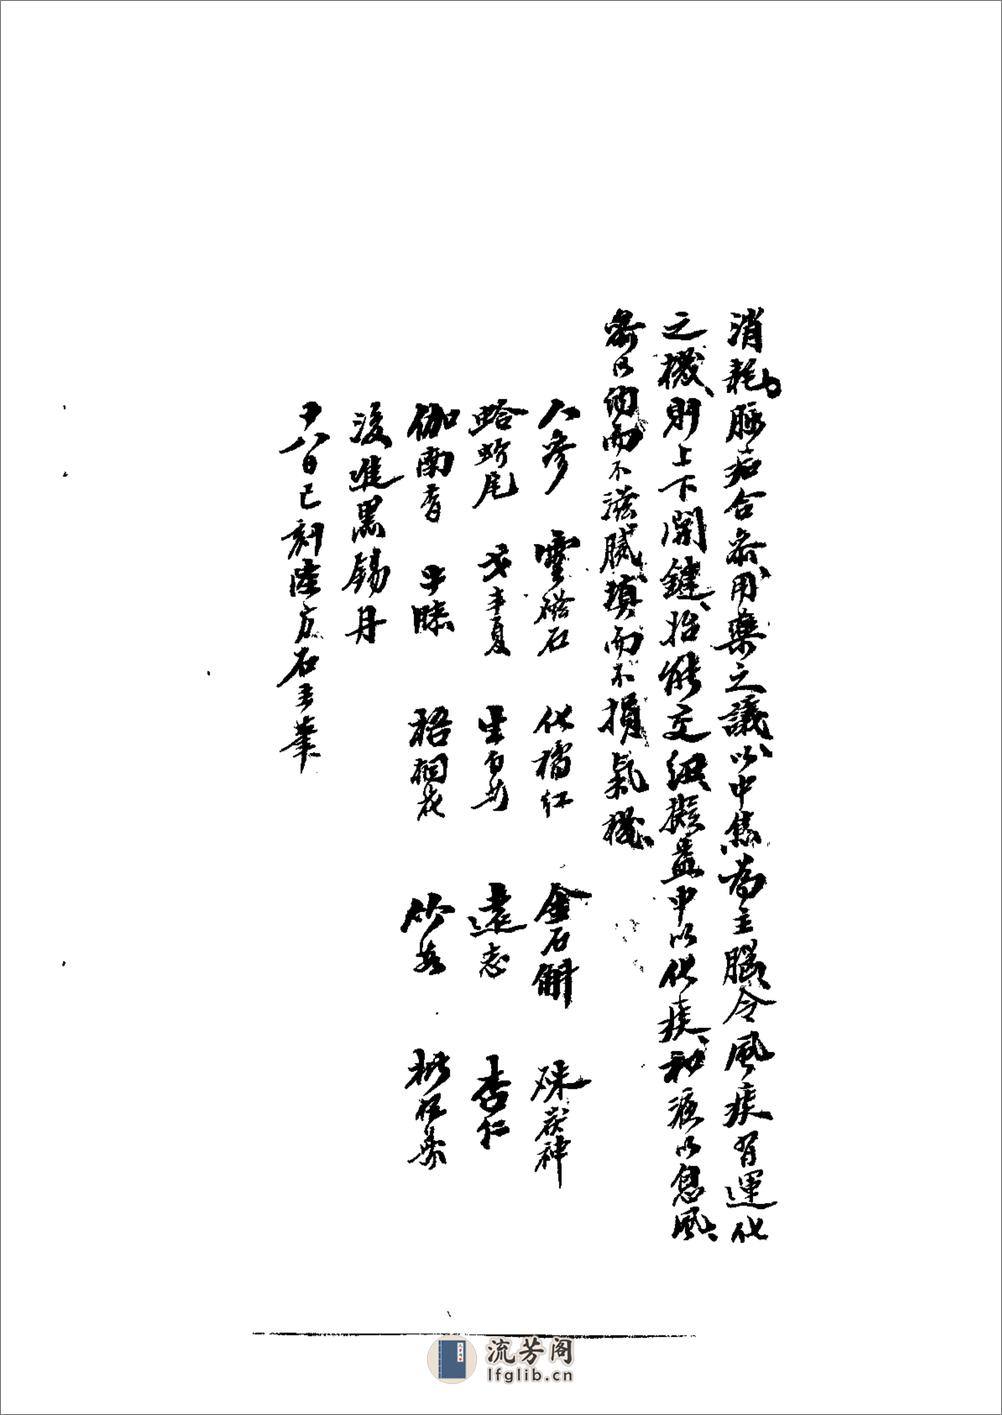 消耗脈若合參用藥之議以中焦為主腦令風痰有運化
之機則上下關鍵始能交紐擬益中以化痰和液以息風
參以納而不滋膩填而不損氣機
人參 靈磁石 化橘红 金石斛 硃茯神
蛤蚧尾 戈半夏 生白芍 遠志 杏仁
伽南香 牛膝 梧桐花 竹茹 枇杷葉
後進黑錫丹
十八日巳刻陸方石主筆
流芳阁
lfglib.cn